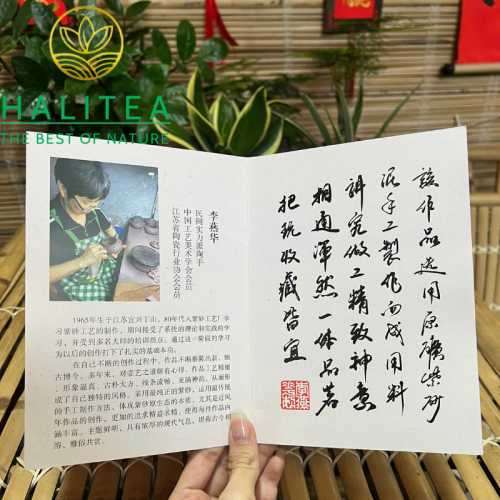 HALITEA
THE BEST OF NATURE
李燕华
民间实力派陶手
中国工艺美术学会会员
江苏省陶瓷行业协会会员
1965年生于江苏宜兴丁山，80年代入紫砂工艺厂学
习紫砂工艺的制作，期间接受了系统的理论和实践的学
习，并受到多名大师的培训指点，通过这一阶段的学习
为以后的创作打下了扎实的基础本功。
在自己不断的创作过程中，作品不断推陈出新、细
古博今。多年来，对壶艺之道颇有心得，作品工艺精雅
、形象逼真、古朴大方、线条流畅、充满神韵，从而形
成了自己独特的风格。采用最纯正的紫砂，运用最传统
的手工制作方法，体现紫砂原生态的水质。尤其是近几
年作品的创作，更加的追求精益求精，使得每件作品内
涵丰富、主题鲜明，具有浓厚的现代气息，堪称古今相
溶，雅俗共赏。
该作品选用原矿紫砂
泥手工制作而成用料
讲究做工精致神意
相通浑然一体品茗
把玩收藏皆宜